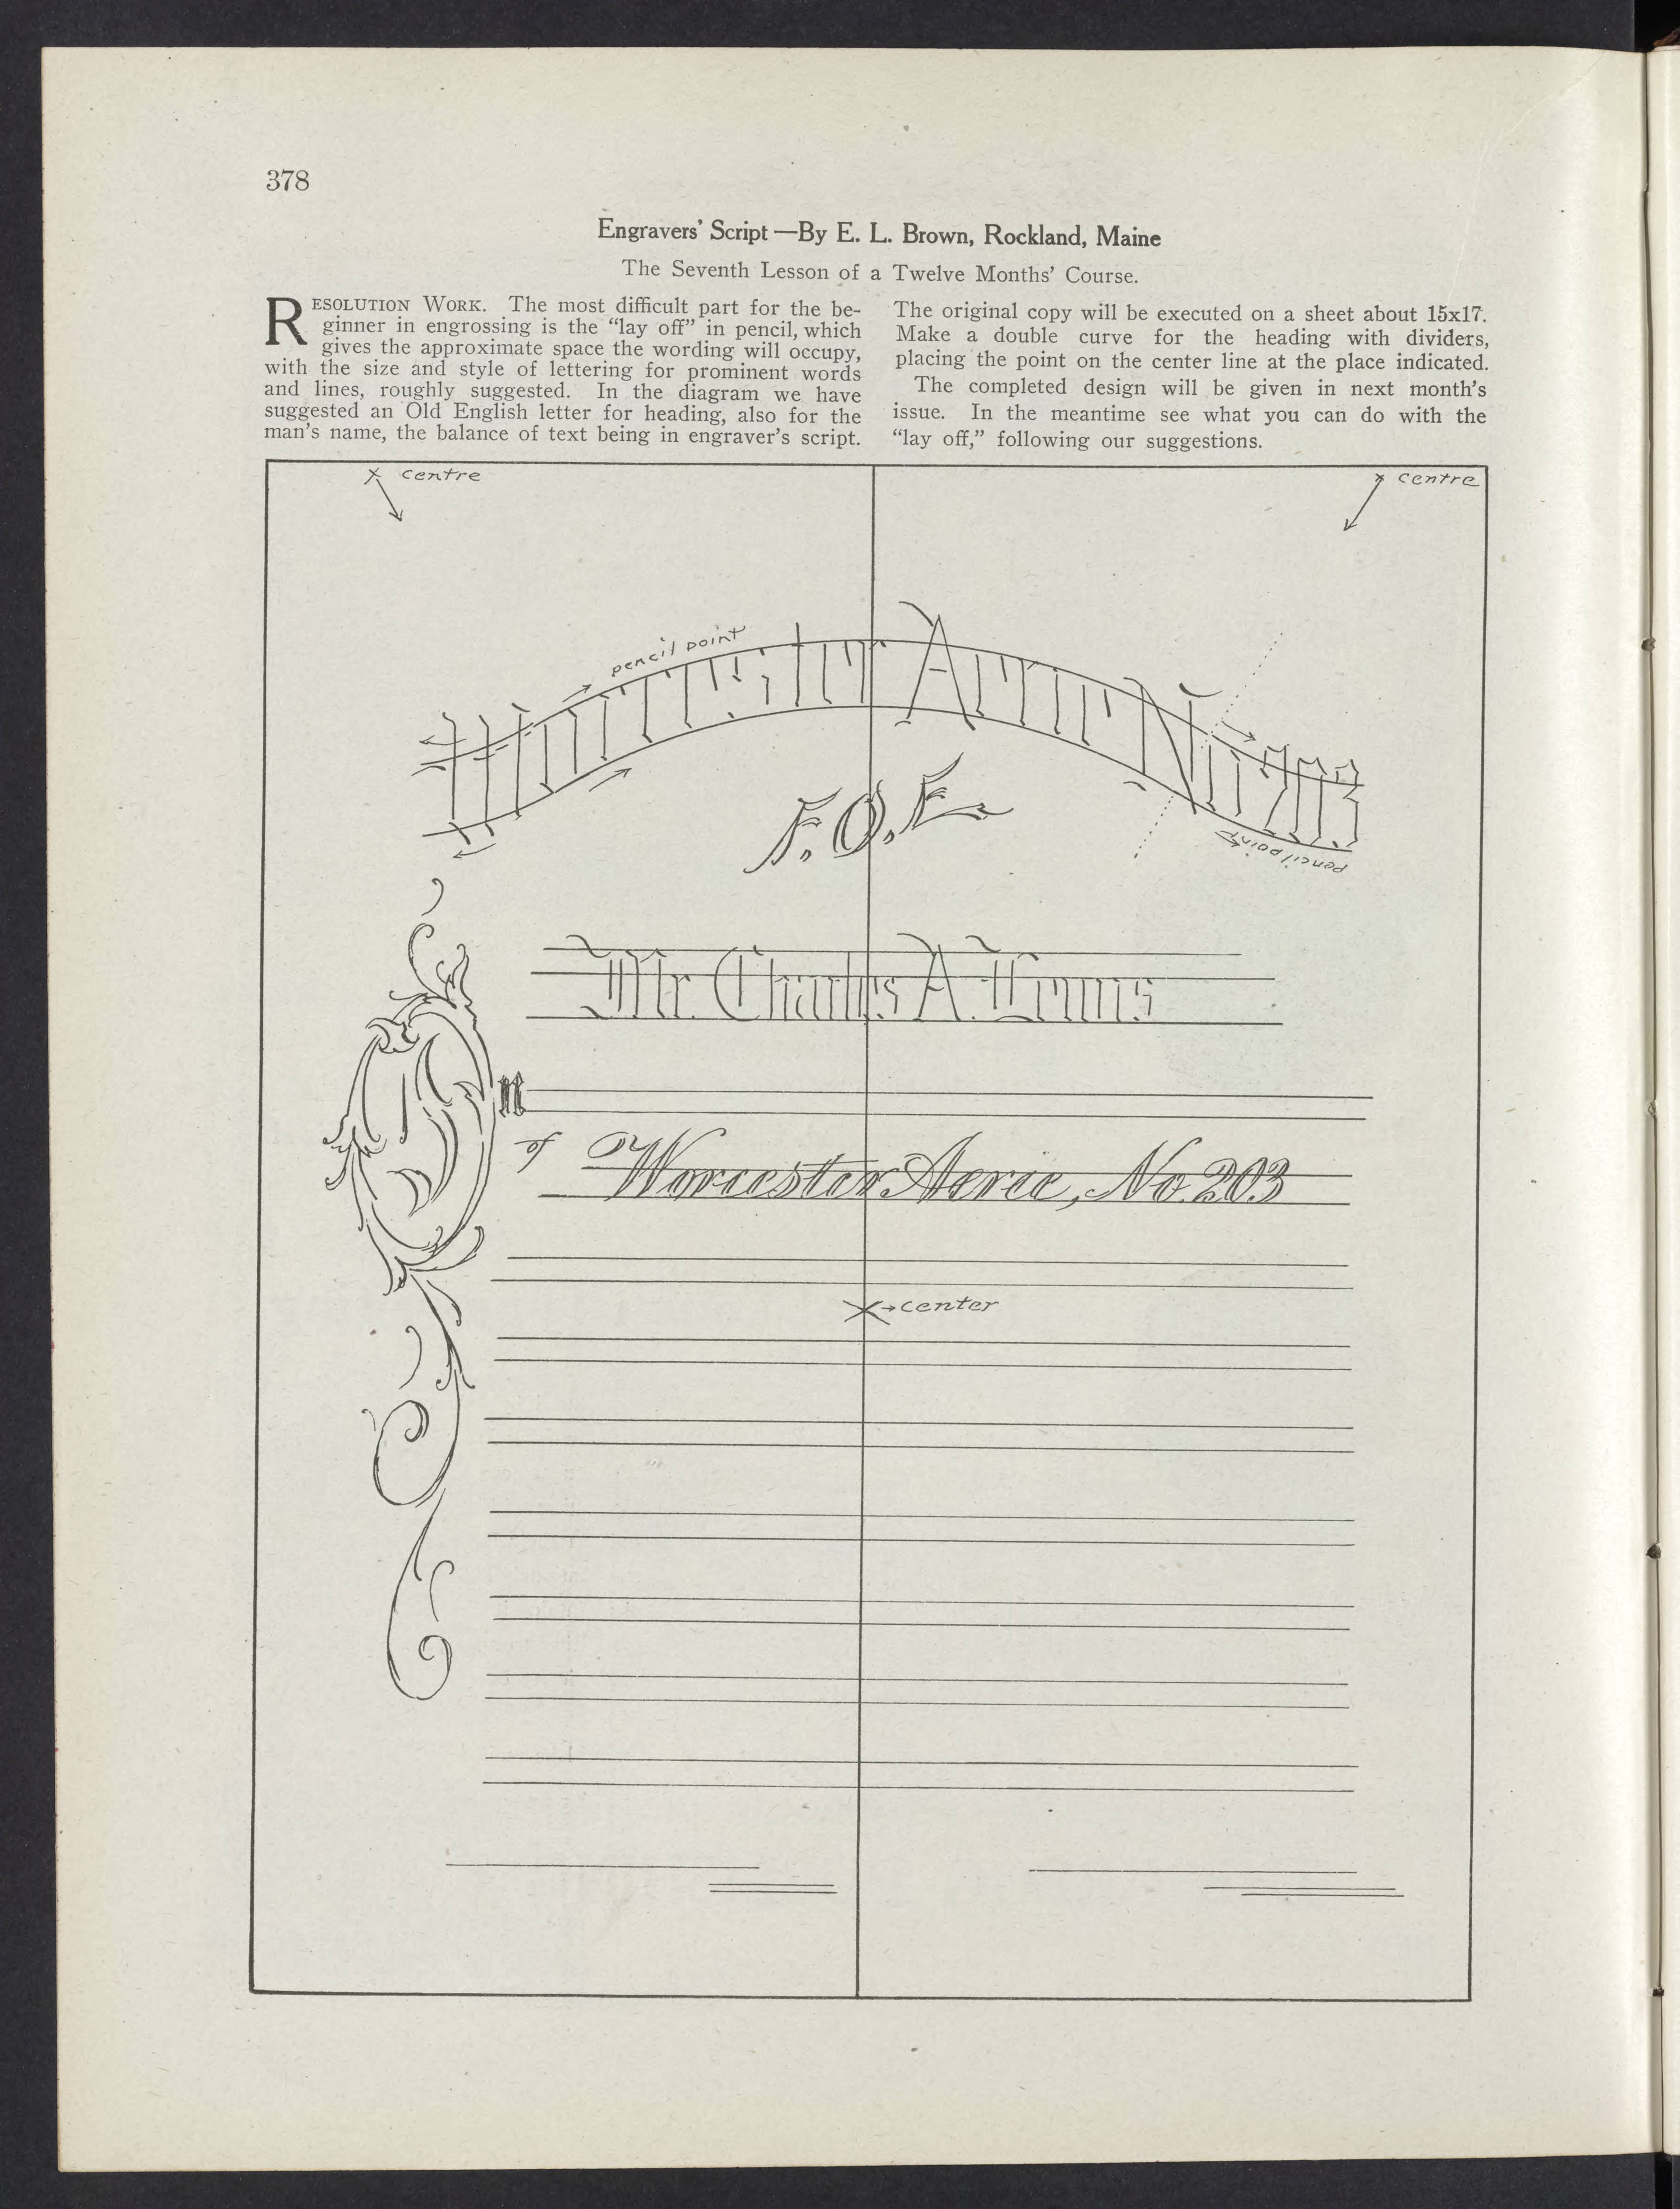 378
Engravers' Script—By E. L. Brown, Rockland, Maine
The Seventh Lesson of a Twelve Months' Course.
RESOLUTION WORK. The most difficult part for the be-
ginner in engrossing is the “lay off” in pencil, which
gives the approximate space the wording will occupy,
with the size and style of lettering for prominent words
and lines, roughly suggested. In the diagram we have
suggested an Old English letter for heading, also for the
man's name, the balance of text being in engraver's script.
The original copy will be executed on a sheet about 15x17.
Make a double curve for the heading with dividers,
placing the point on the center line at the place indicated.
The completed design will be given in next month's
issue. In the meantime see what you can do with the
“lay off,” following our suggestions.
centre
centre
pencil point
Worcester Aerie No 203
pencil point
F.O.E.
Mr. Charles A.
n
of Worcester Aerie, No. 203
center